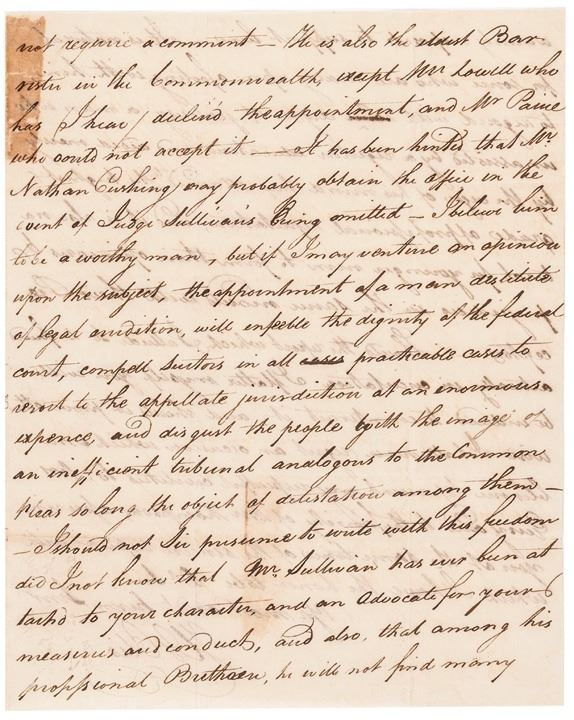 not require a comment — He is also the eldest Bar-
rister in the Commonwealth, except Mr Lowell who
has (I hear) declind the appointment, and Mr Paine
who would not accept it — It has been hinted that Mr.
Nathan Cushing may probably obtain the office in the
event of Judge Sullivan's being omitted — I believe him
to be a worthy man, but if I may venture an opinion
upon the subject, the appointment of a man destitute
of legal erudition, will enfeeble the dignity of the federal
court, compell suitors in all cases practicable cases to
resort to the appellate jurisdiction at an enormous
expence, and disgust the people with the image of
an inefficient tribunal analogous to the Common
Pleas so long the object of detestation among them —
— I should not Sir presume to write with this freedom
did I not know that Mr. Sullivan has ever been at
tachd to your character, and an Advocate for your
measures and conduct, and also, that among his
professional Brethren, he will not find many